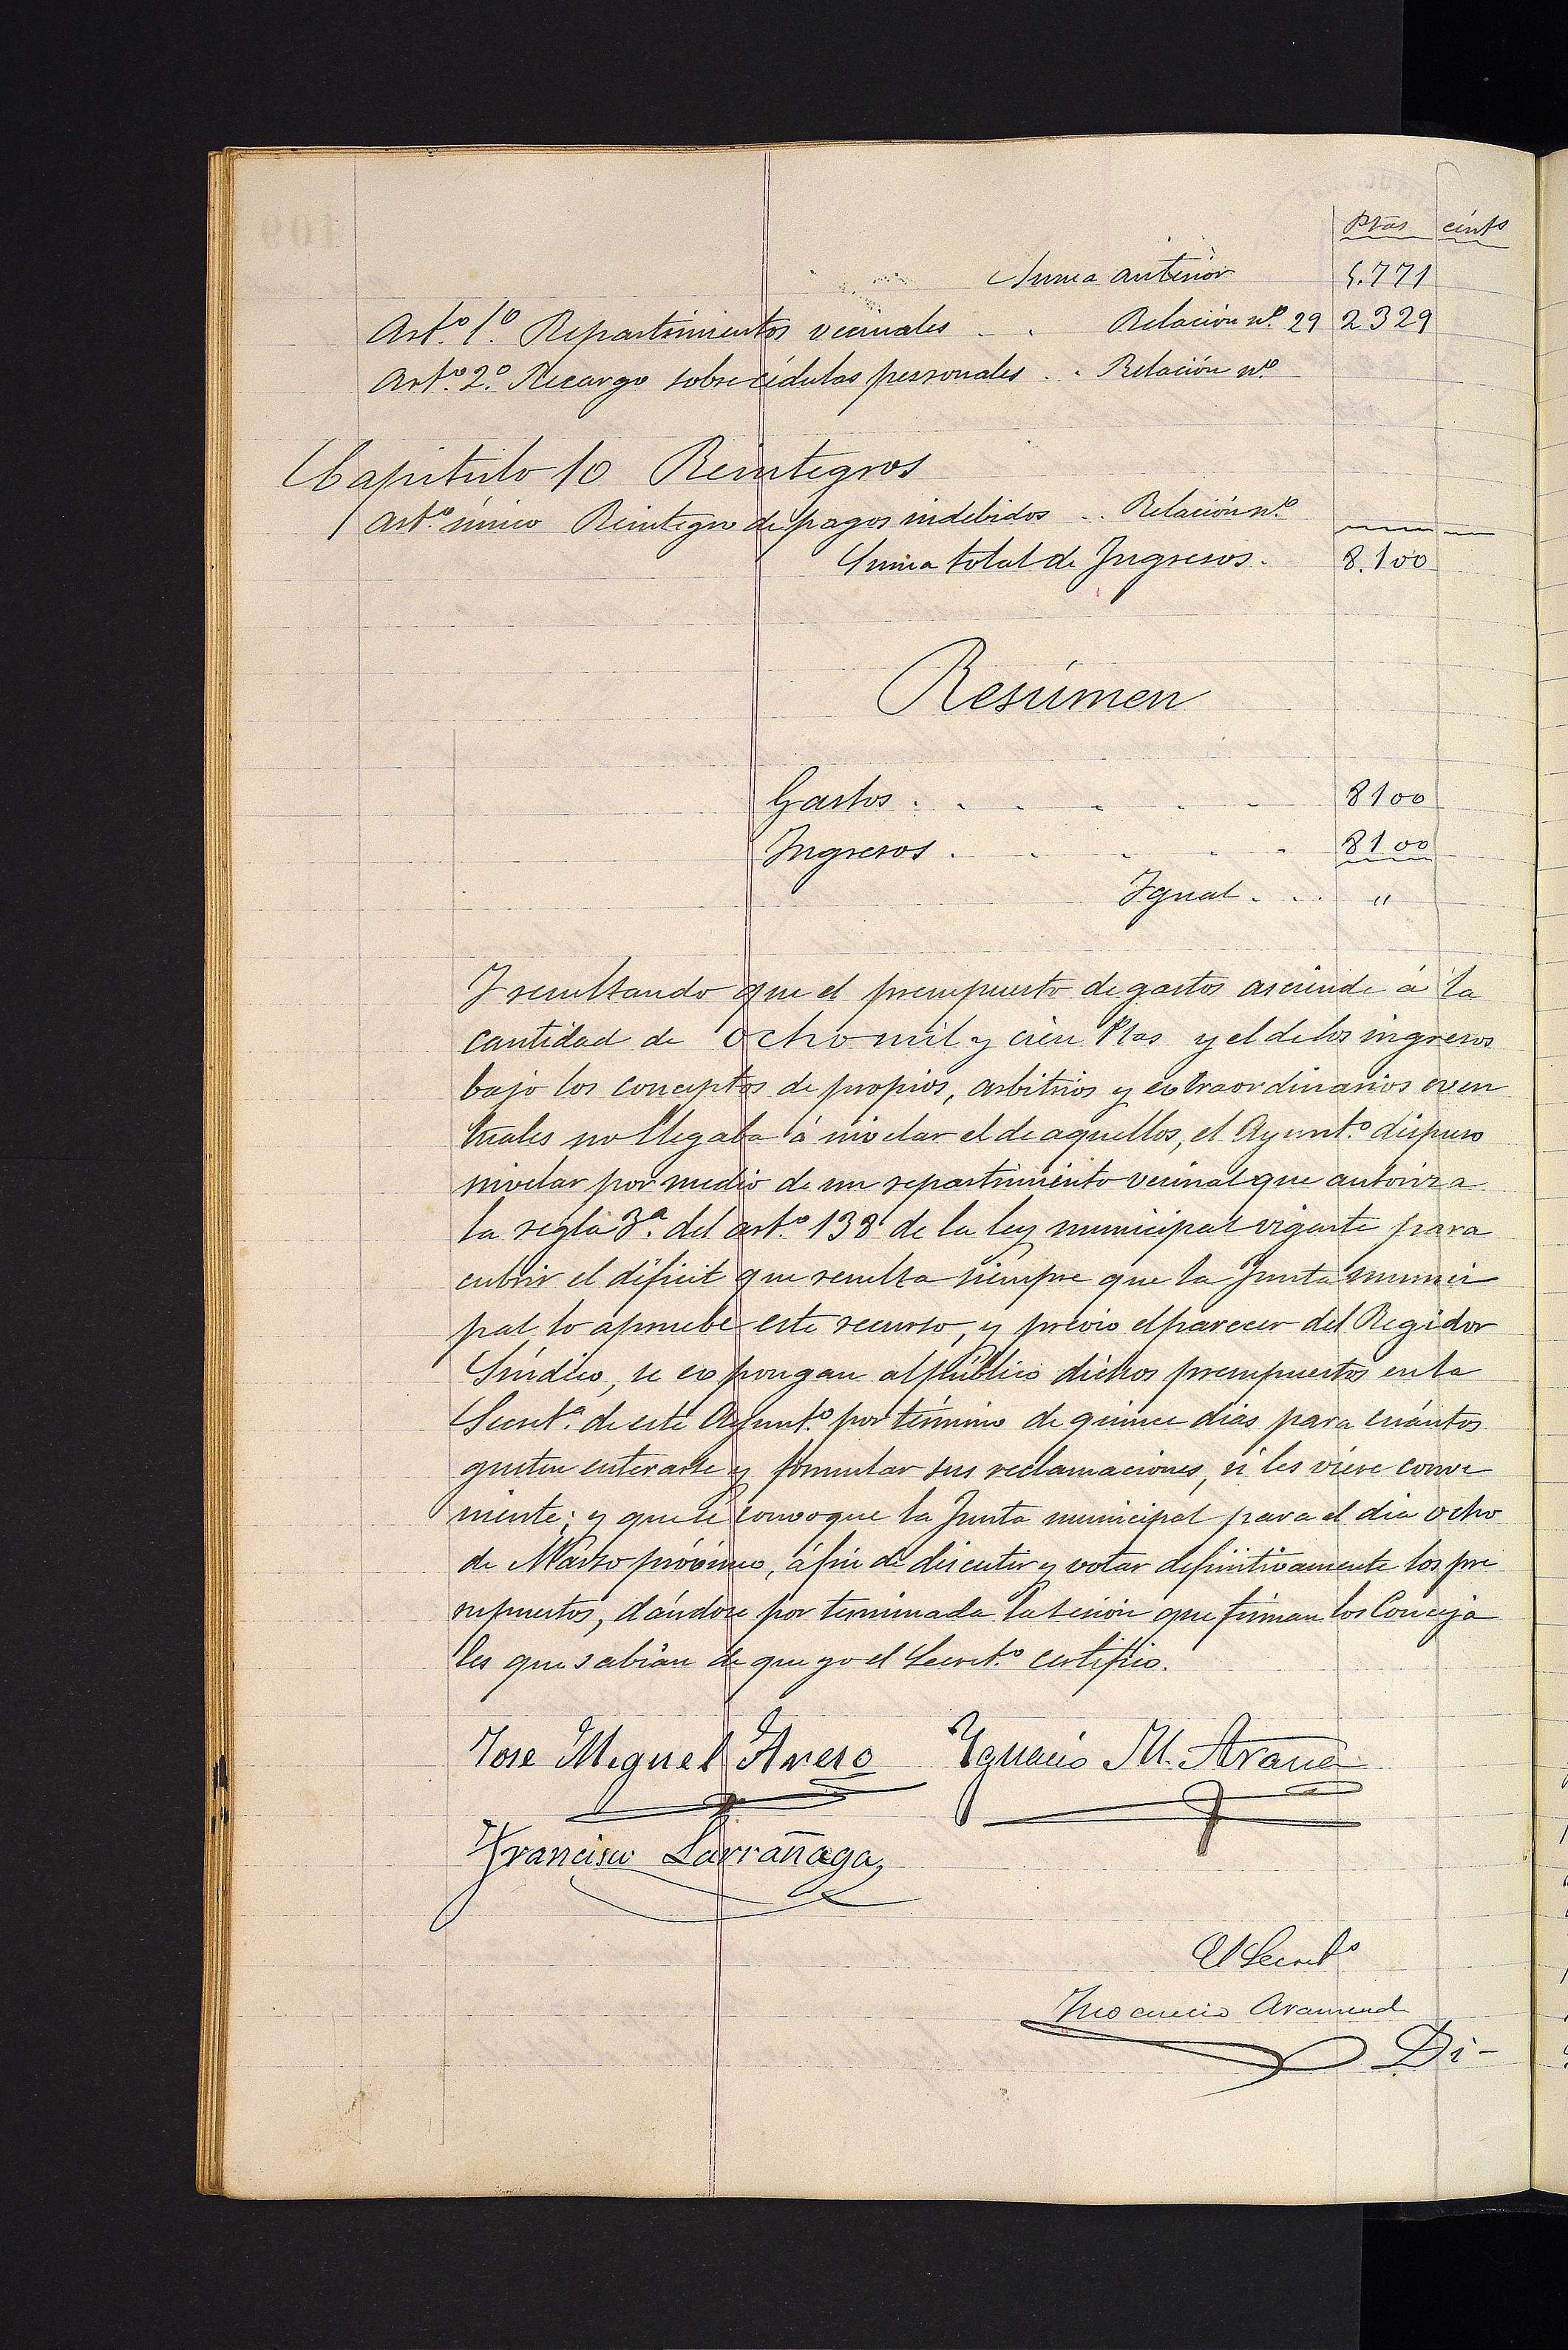 Ptas cénts
Suma anterior 5.771
Art.º 1.º Repartimientos vecinales . . Relación nº. 29 2329
Art.º 2.º Recargo sobre cédulas personales . . Relación nº
Capitulo 10 Reintegros
Art.º único Reintegro de pagos indebidos . . Relación nº
Suma total de Ingresos. 8.100
Resúmen
Gastos . . . . . . 8100
Ingresos . . . . . 8100
Igual . . . "
Y resultando que el presupuesto de gastos asciende á la
cantidad de ocho mil y cien Ptas y el de los ingresos
bajo los conceptos de propios, arbitrios y extraordinarios even
tuales no llegaba á nivelar el de aquellos, el Ayunt.º dispuso
nivelar por medio de un repartimiento vecinal que autoriza
la regla 3ª. del art.º 138 de la ley municipal vigente para
cubrir el déficit que resulta siempre que la Junta munici
pal lo apruebe este recurso, y previo el parecer del Regidor
Síndico, se expongan al público dichos presupuestos en la
Secret.ª de este Ayunt.º por término de quince dias para cuántos
gusten enterarse y formular sus reclamaciones, si les viere conve
niente; y que se convoque la Junta municipal para el dia ocho
de Marzo próximo, á fin de discutir y votar definitivamente los pre
supuestos, dándose por terminada la sesión que firman los Conceja
les que sabían de que yo el Secret.º certifico.
Jose Miguel Ignacio M. Arana
Francisco Larrañaga
El Secretº
Inocencio Aramend
Di-
109